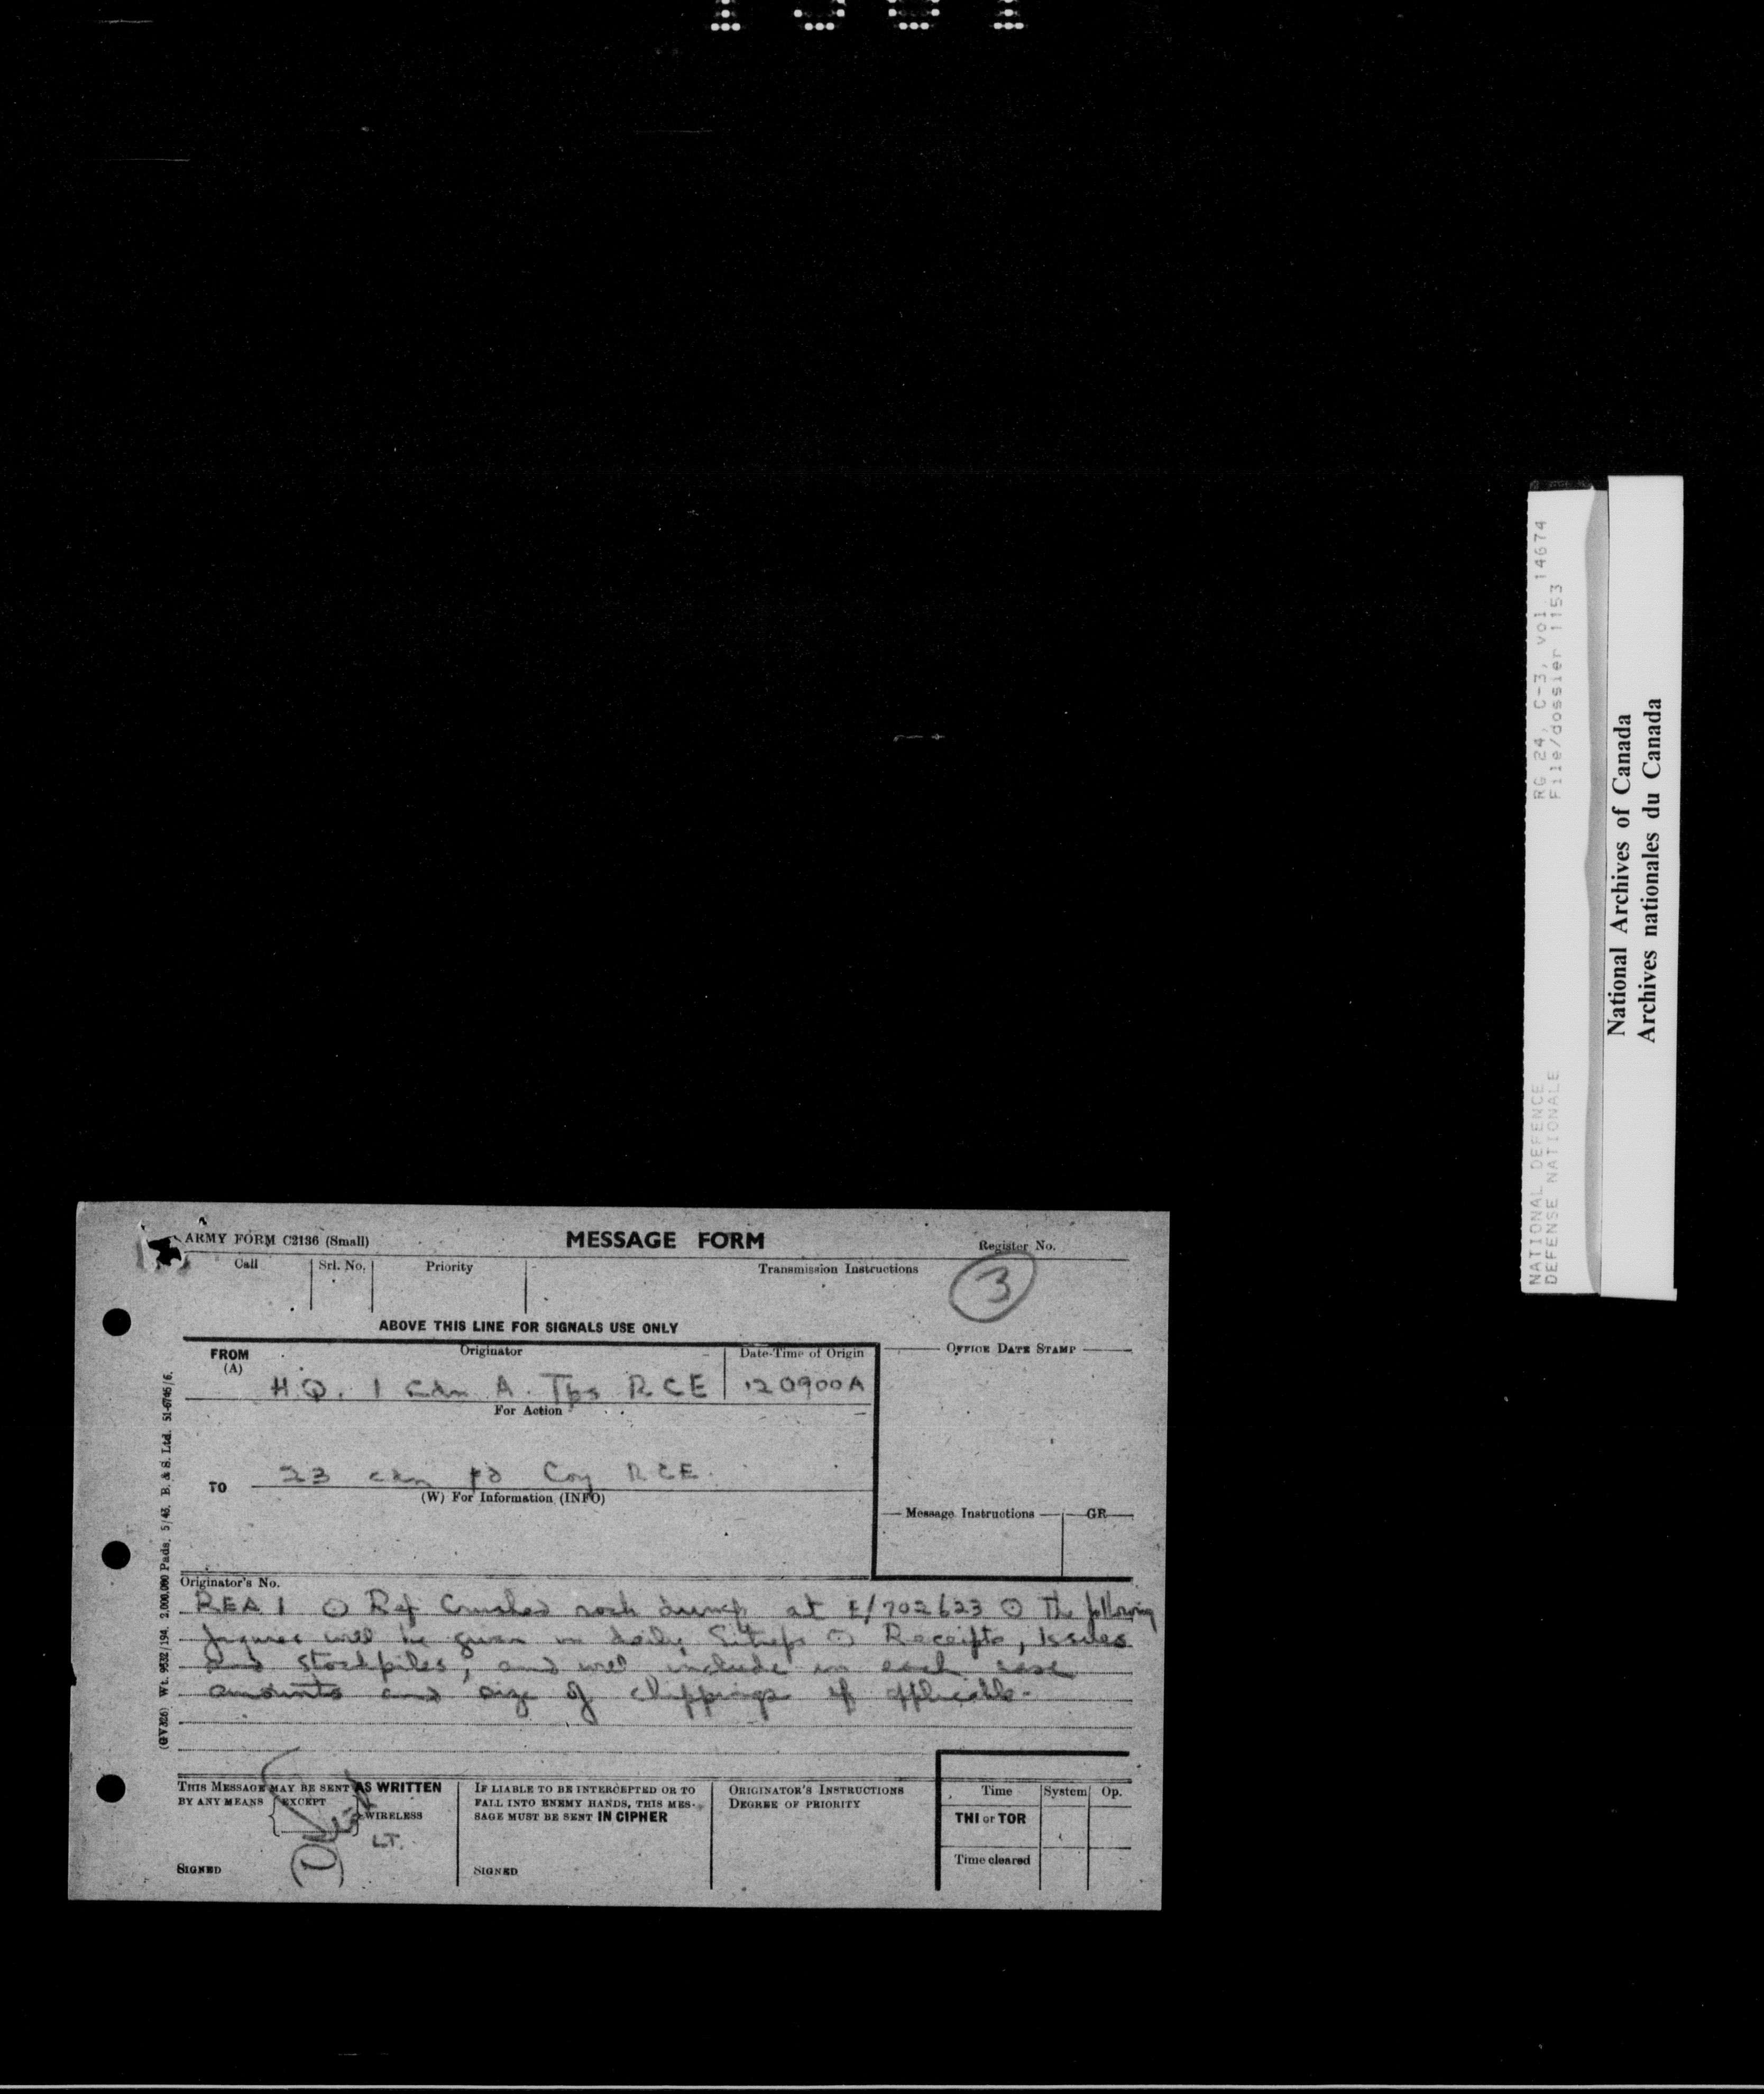 RG 24, C-3, vol. 14674
File/dossier 1153
NATIONAL DEFENCE
DEFENSE NATIONALE
National Archives of Canada
Archives nationales du Canada
ARMY FORM C2136 (Small)
MESSAGE FORM
Register No.
Call
Srl. No.
Priority
Transmission Instructions
3
ABOVE THIS LINE FOR SIGNALS USE ONLY
FROM
(A)
Originator
Date-Time of Origin
OFFICE DATE STAMP
H.Q. 1 Cdn A. Tps RCE
120900A
For Action
TO
23 Cdn Fd Coy RCE
(W) For Information (INFO)
Message Instructions
GR
Originator's No.
REA 1 ⊙ Ref Crushed rock dump at E/702623 ⊙ The following
figures will be given in daily Sitreps ⊙ Receipts, Issues
and stockpiles, and will include in each case
amounts and size of chippings if applicable.
(GV326) Wt. 9532/194. 2,000,000 Pads. 5/43. B. & S. Ltd. 51-6746/6.
THIS MESSAGE MAY BE SENT AS WRITTEN
BY ANY MEANS
EXCEPT
WIRELESS
LT.
SIGNED
IF LIABLE TO BE INTERCEPTED OR TO
FALL INTO ENEMY HANDS, THIS MES-
SAGE MUST BE SENT IN CIPHER
SIGNED
ORIGINATOR'S INSTRUCTIONS
DEGREE OF PRIORITY
Time
System
Op.
THI or TOR
Time cleared